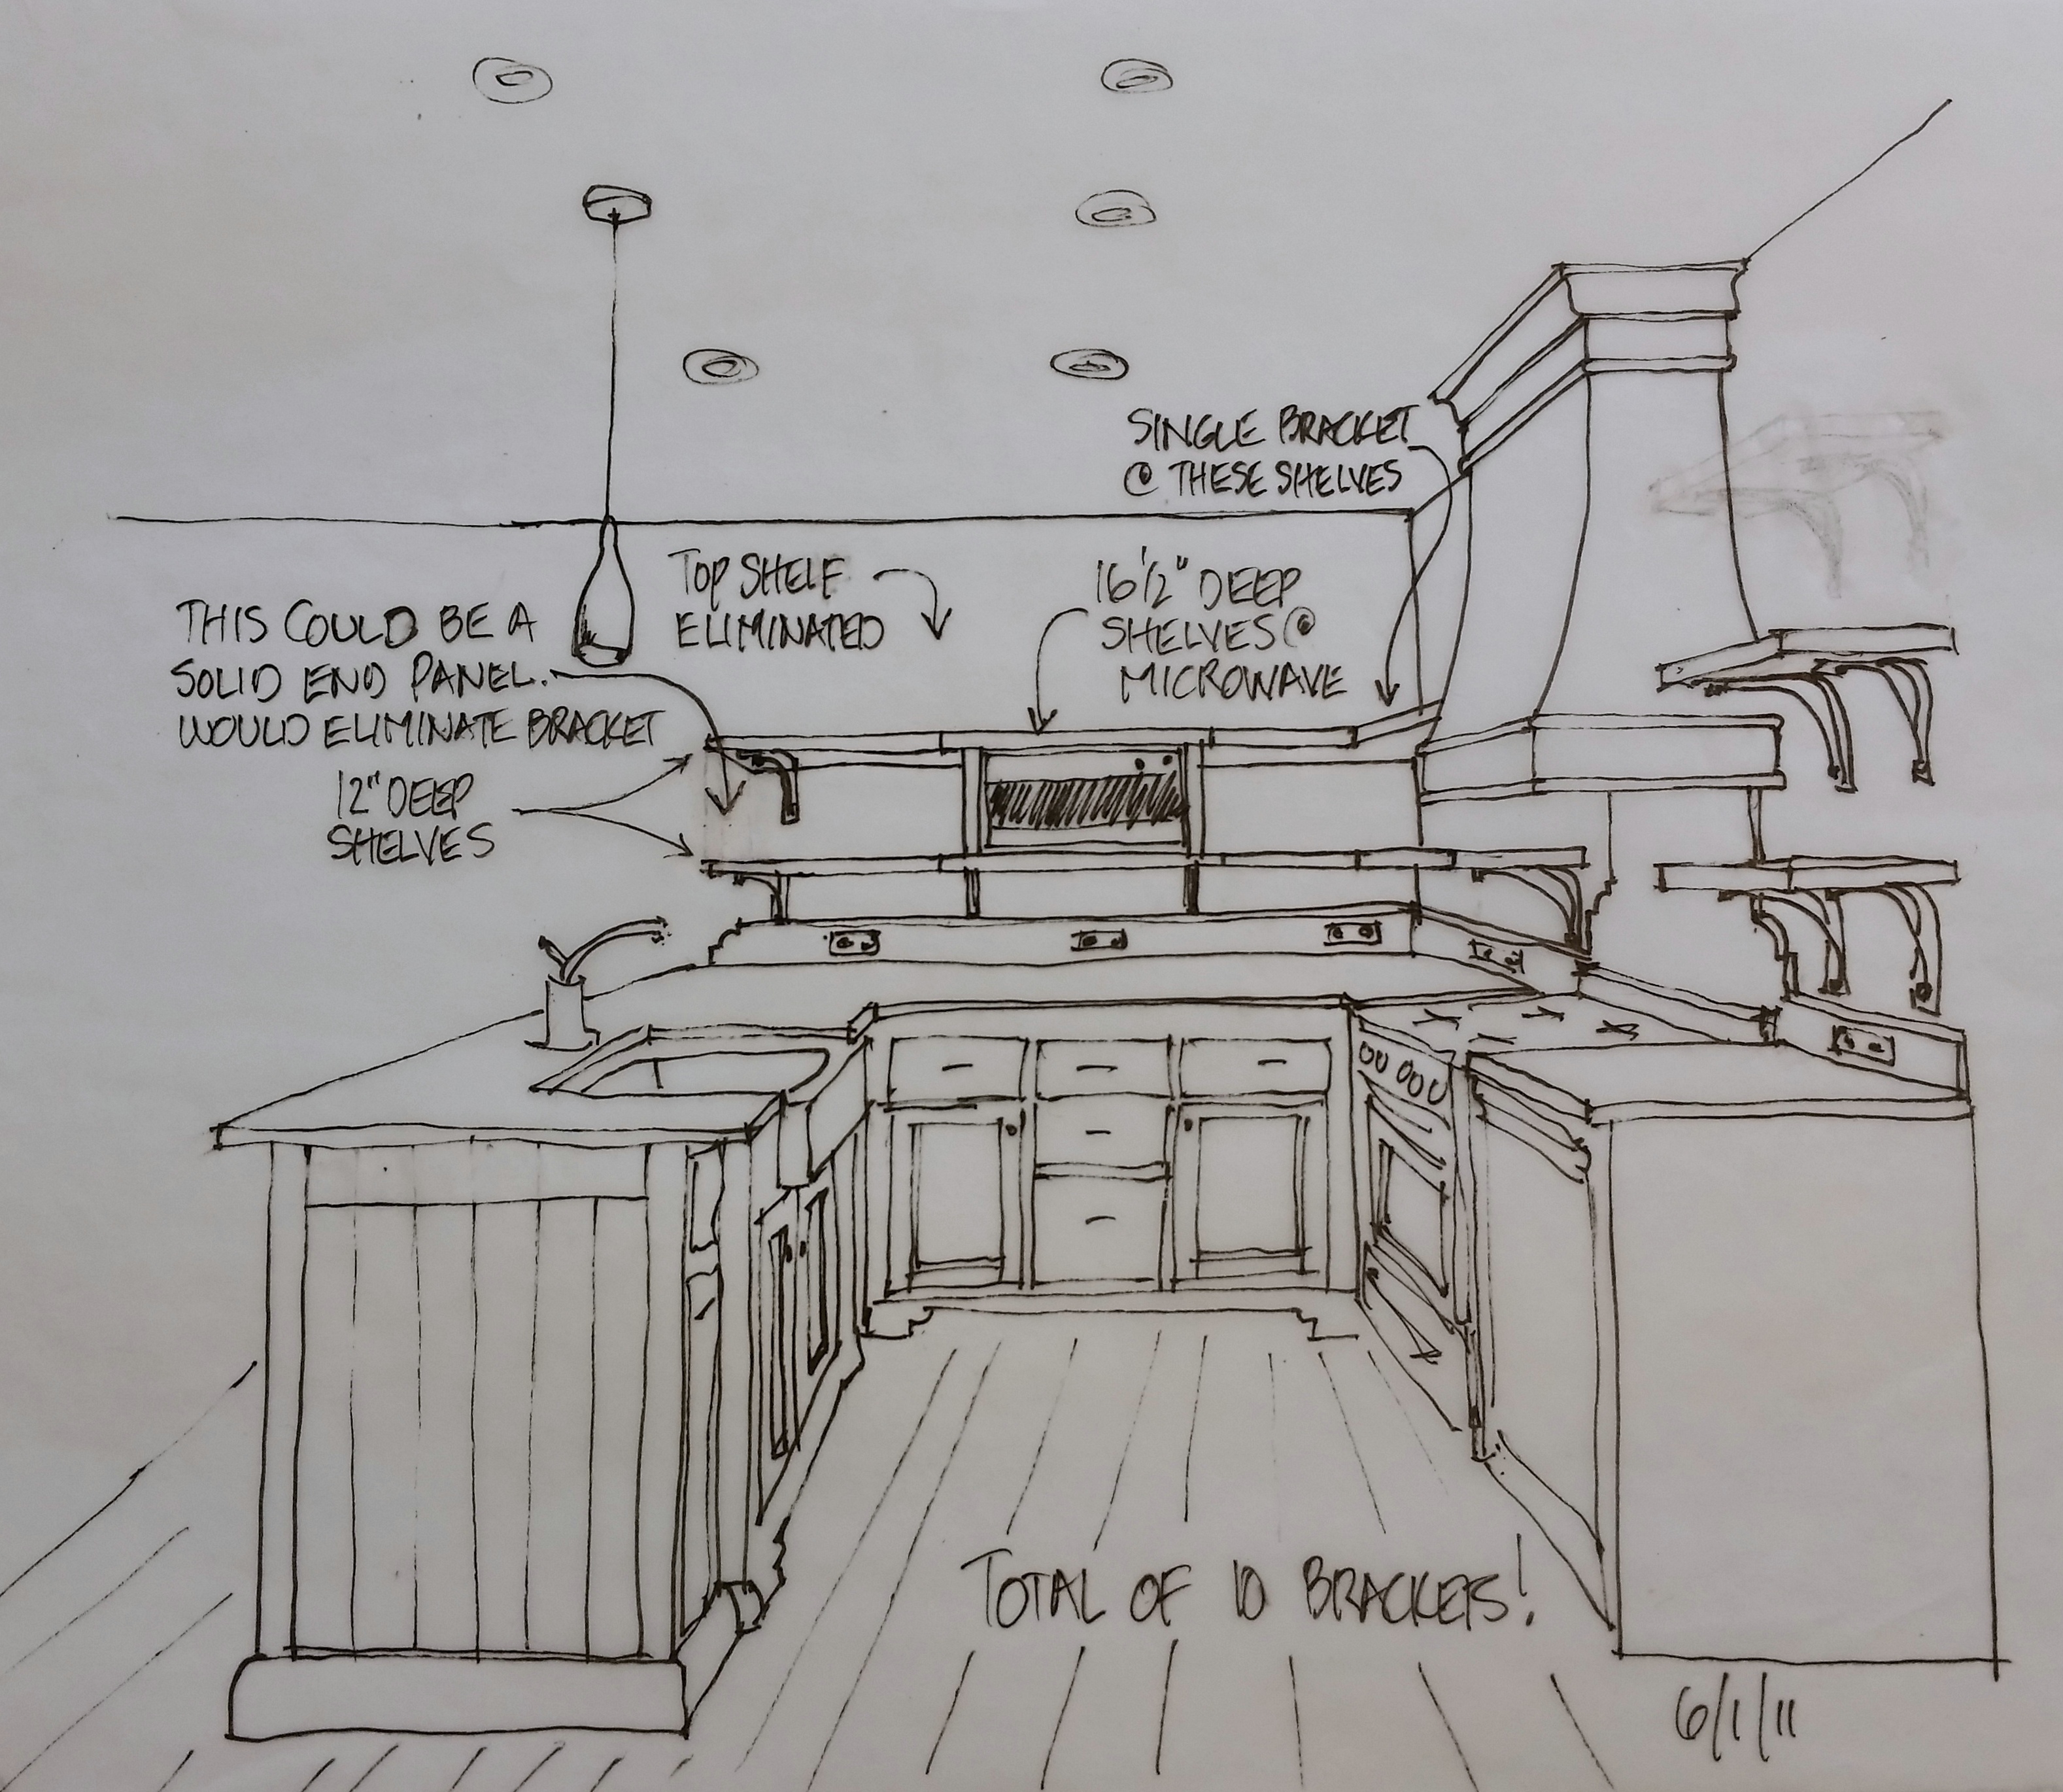 SINGLE BRACKET
@ THESE SHELVES
TOP SHELF
ELIMINATED
16 1/2" DEEP
SHELVES @
MICROWAVE
THIS COULD BE A
SOLID END PANEL.
WOULD ELIMINATE BRACKET
12" DEEP
SHELVES
TOTAL OF 10 BRACKETS!
6/1/11